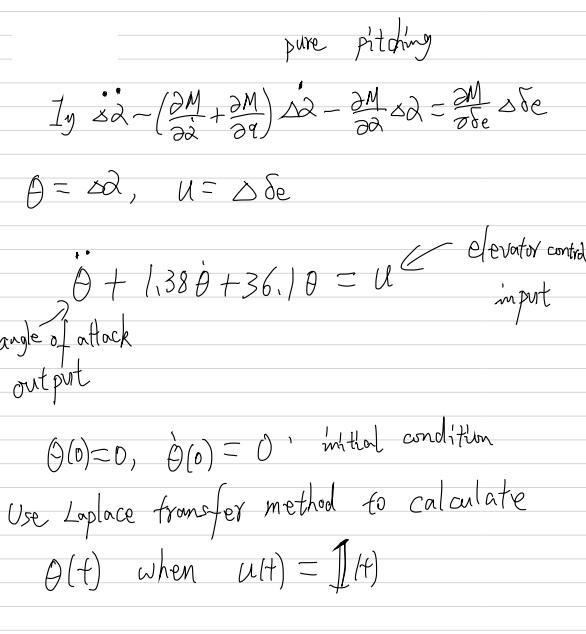 pure pitching
Iy Δα̈ - (∂M/∂α̇ + ∂M/∂q) Δα̇ - ∂M/∂α Δα = ∂M/∂δe Δδe
θ = Δα, u = Δδe
θ̈ + 1.38 θ̇ + 36.1 θ = u
elevator control
input
angle of attack
output
θ(0)=0, θ̇(0) = 0. initial condition
Use Laplace transfer method to calculate
θ(t) when u(t) = 𝟙(t)